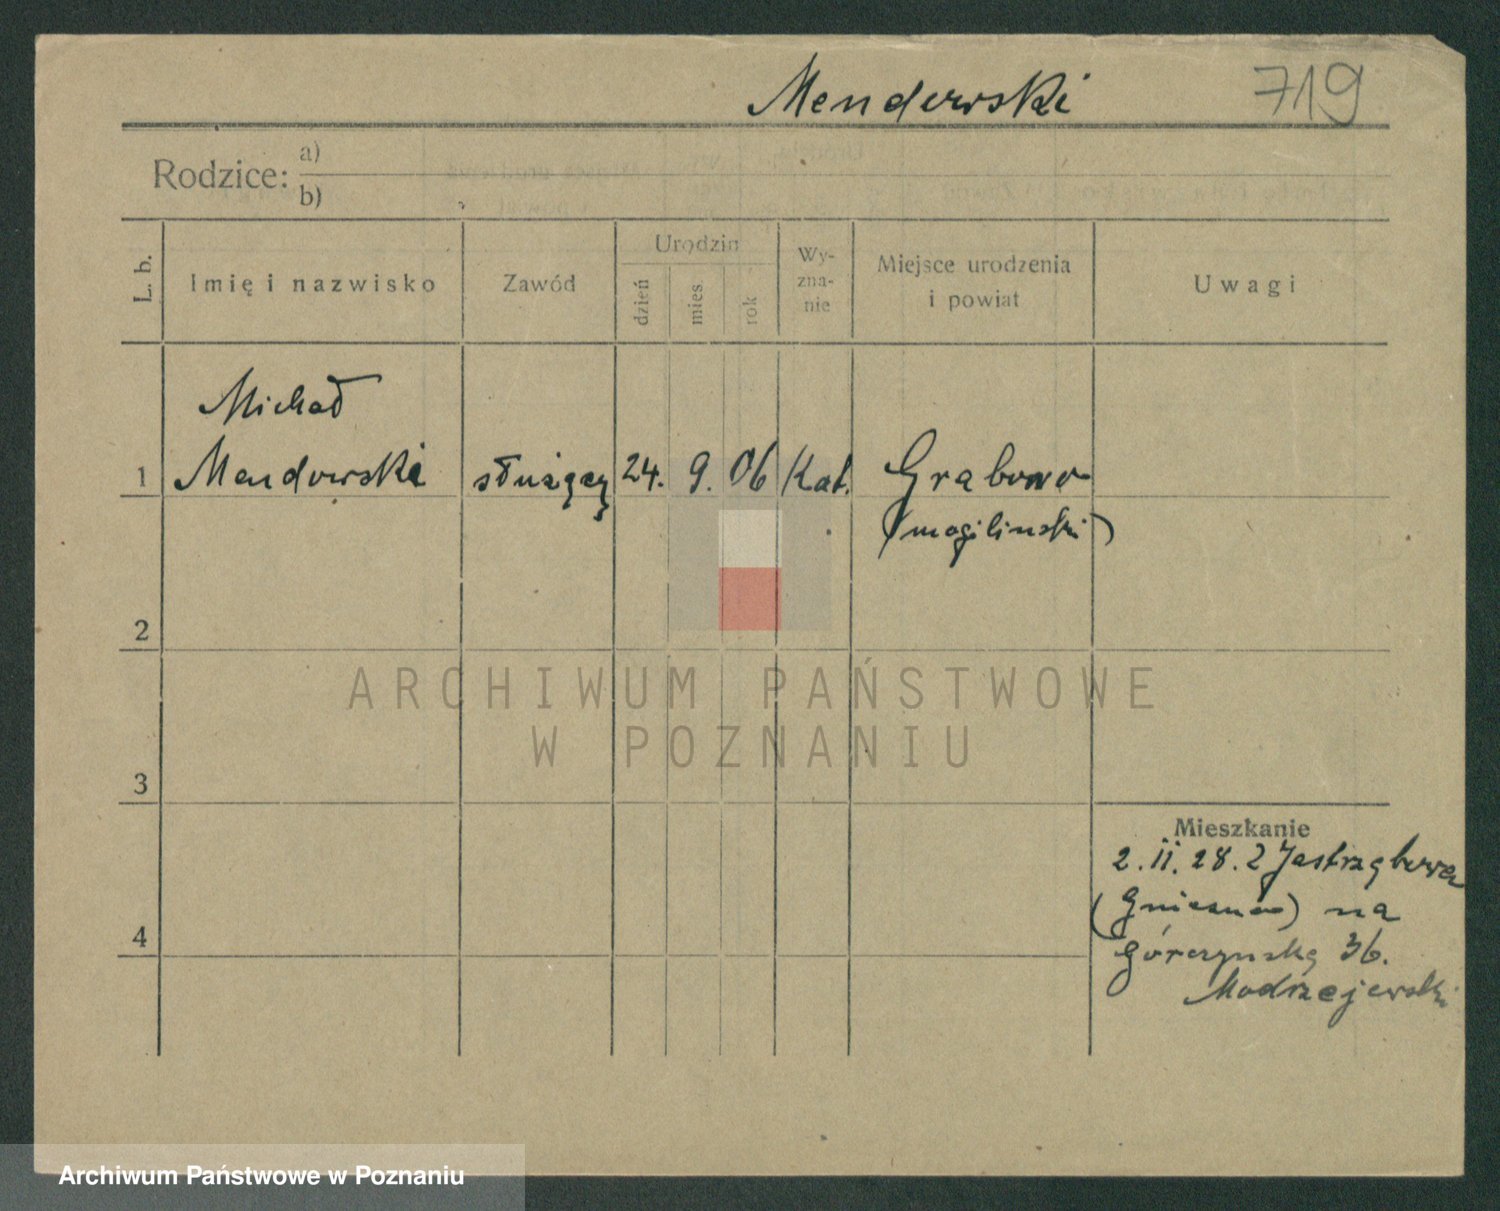 Mendowski 719
Rodzice: a)
b)
L. b. Imię i nazwisko Zawód Urodzin dzień mies. rok Wy-
zna-
nie Miejsce urodzenia
i powiat Uwagi
Michał
1 Mendowski służący 24. 9. 06 Kat. Grabowo
(mogilinski)
2
ARCHIWUM PAŃSTWOWE
W POZNANIU
3
Mieszkanie
2. II. 28. z Jastrzębowa
(Gniezno) na
4 Górczyńską 36.
Modrzejewski
Archiwum Państwowe w Poznaniu